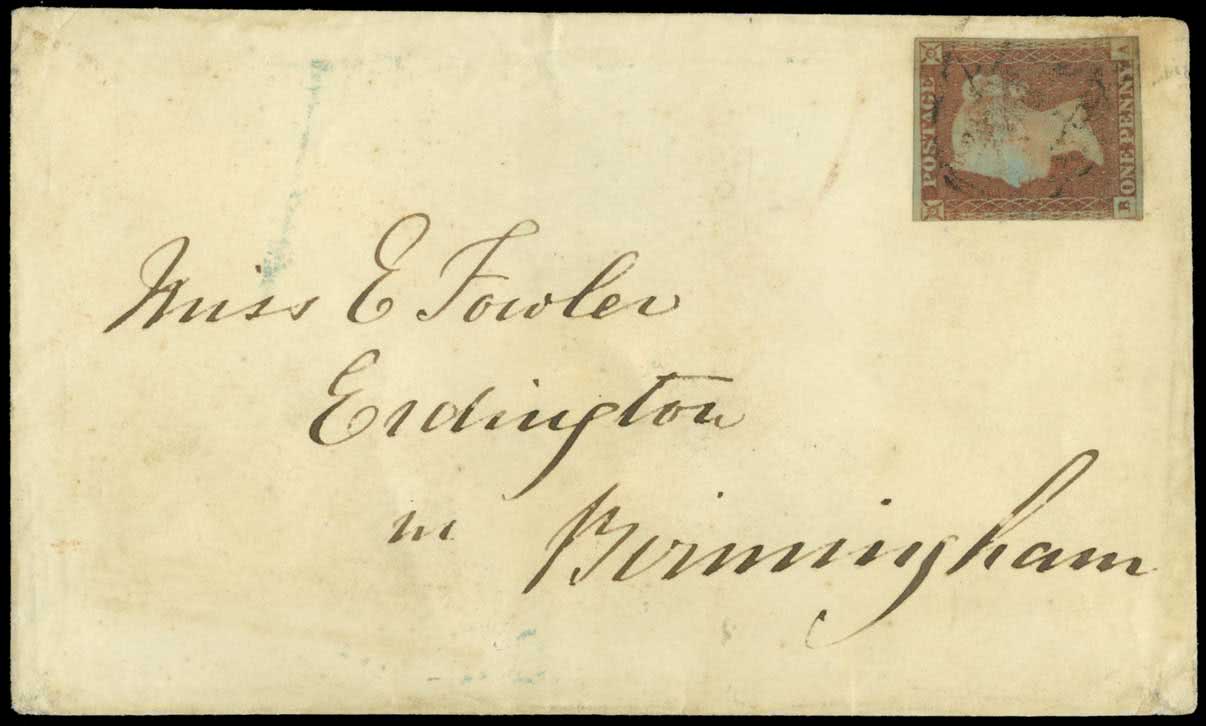 POSTAGE
ONE PENNY
B A
Miss E Fowler
Erdington
nr Birmingham